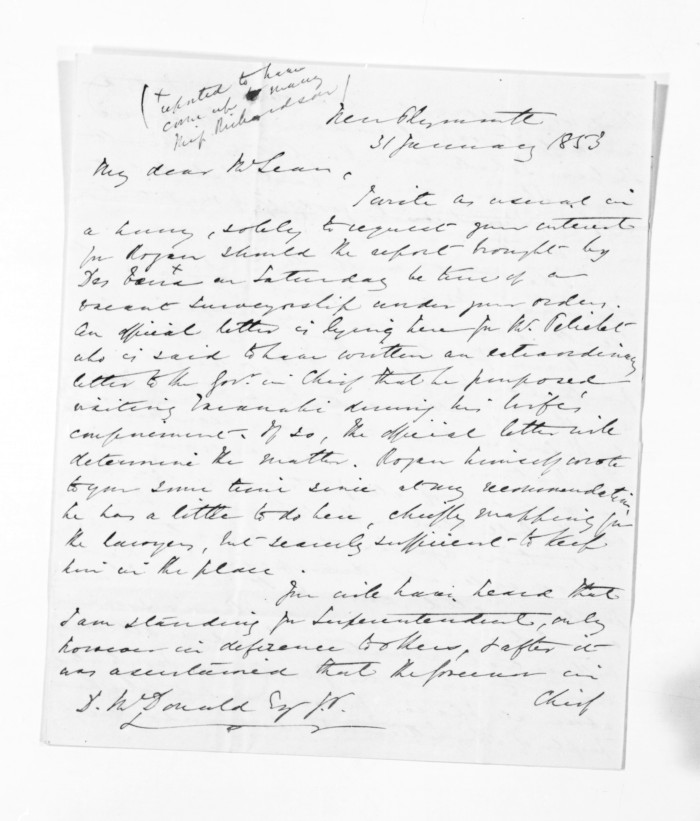 (+ reported to have
come up to marry
Miss Richardson)
New Plymouth
31 January 1853
My dear McLean,
I write as usual in
a hurry, solely to request your interest
for Rogan should the report brought by
Des Vœux + on Saturday be true of a
vacant surveyorship under your orders.
An official letter is lying here for Mr. Pelichet
who is said to have written an extraordinary
letter to the Govr. in Chief that he proposed
visiting Taranaki during his wife's
confinement. If so, the official letter will
determine the matter. Rogan himself wrote
to you some time since at my recommendation,
he has a little to do here, chiefly mapping for
the lawyers, but scarcely sufficient to keep
him in the place.
You will have heard that
I am standing for Superintendent, only
however in deference to others, & after it
was ascertained that the Governor in
D. McDonald Esq J.P.
Chief